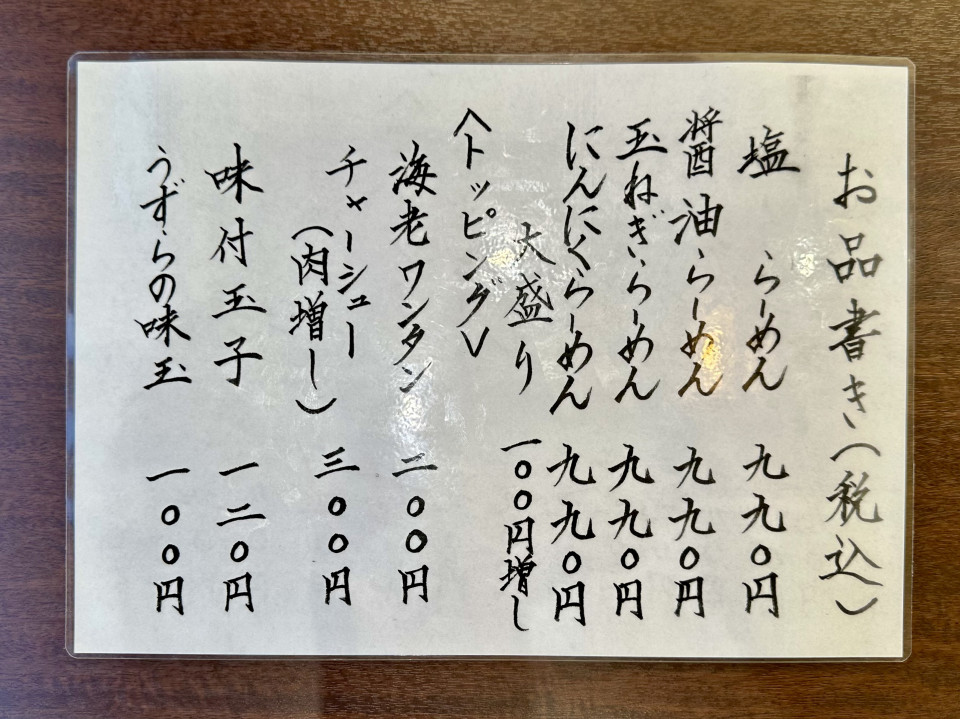 お品書き(税込)
塩らーめん 九九〇円
醤油らーめん 九九〇円
玉ねぎらーめん 九九〇円
にんにくらーめん 九九〇円
大盛り 一〇〇円増し
<トッピング>
海老ワンタン 二〇〇円
チャーシュー 三〇〇円
(肉増し)
味付玉子 一二〇円
うずらの味玉 一〇〇円